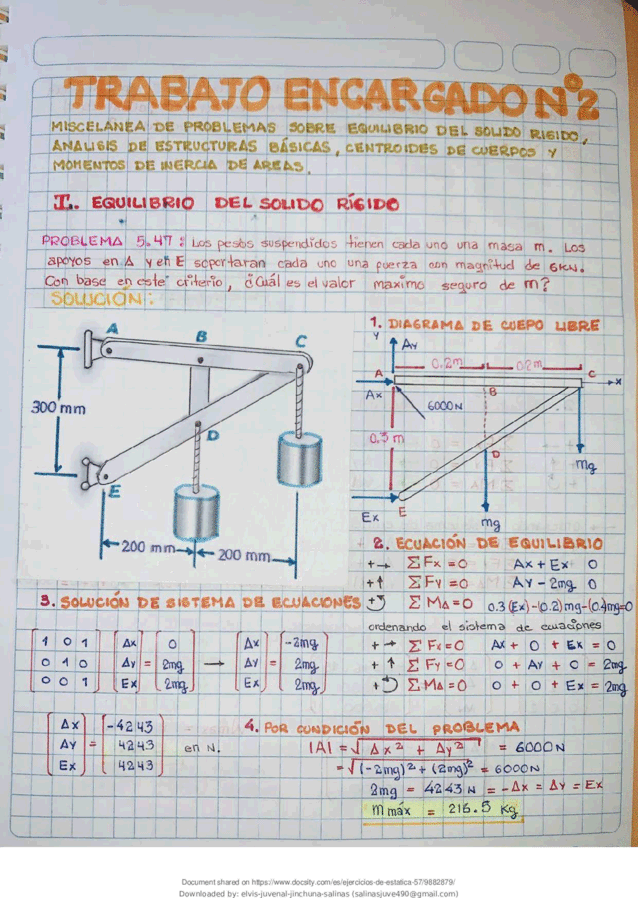 TRABAJO ENCARGADO N°2
MISCELANEA DE PROBLEMAS SOBRE EQUILIBRIO DEL SOLIDO RIGIDO,
ANALISIS DE ESTRUCTURAS BÁSICAS, CENTROIDES DE CUERPOS Y
MOMENTOS DE INERCIA DE AREAS.
I. EQUILIBRIO DEL SOLIDO RÍGIDO
PROBLEMA 5.47 : Los pesos suspendidos tienen cada uno una masa m. Los
apoyos en A y en E soportaran cada uno una fuerza con magnitud de 6KN.
Con base en este criterio, ¿Cuál es el valor maximo seguro de m?
SOLUCIÓN:
A
B
C
300 mm
D
E
200 mm
200 mm
1. DIAGRAMA DE CUEPO LIBRE
Y
Ay
0.2m
0.2m
A
C
x
Ax
6000N
B
0.3 m
D
mg
E
Ex
mg
2. ECUACIÓN DE EQUILIBRIO
+→ ΣFx=0 Ax + Ex= 0
+↑ ΣFy=0 Ay - 2mg 0
+↺ ΣMA=0 0.3(Ex)-(0.2)mg-(0.4)mg=0
ordenando el sistema de ecuaciones
+→ ΣFx=0 Ax + 0 + Ex = 0
+↑ ΣFy=0 0 + Ay + 0 = 2mg
+↺ ΣMA=0 0 + 0 + Ex = 2mg
3. SOLUCIÓN DE SISTEMA DE ECUACIONES
1 0 1 Ax 0 Ax -2mg
0 1 0 Ay = 2mg → Ay = 2mg
0 0 1 Ex 2mg Ex 2mg
Ax -4243
Ay = 4243 en N.
Ex 4243
4. POR CONDICIÓN DEL PROBLEMA
|A| = √Ax² + Ay² = 6000N
= √(-2mg)² + (2mg)² = 6000N
2mg = 4243 N = -Ax = Ay = Ex
m máx = 216.5 Kg
Document shared on https://www.docsity.com/es/ejercicios-de-estatica-57/9882879/
Downloaded by: elvis-juvenal-jinchuna-salinas (salinasjuve490@gmail.com)